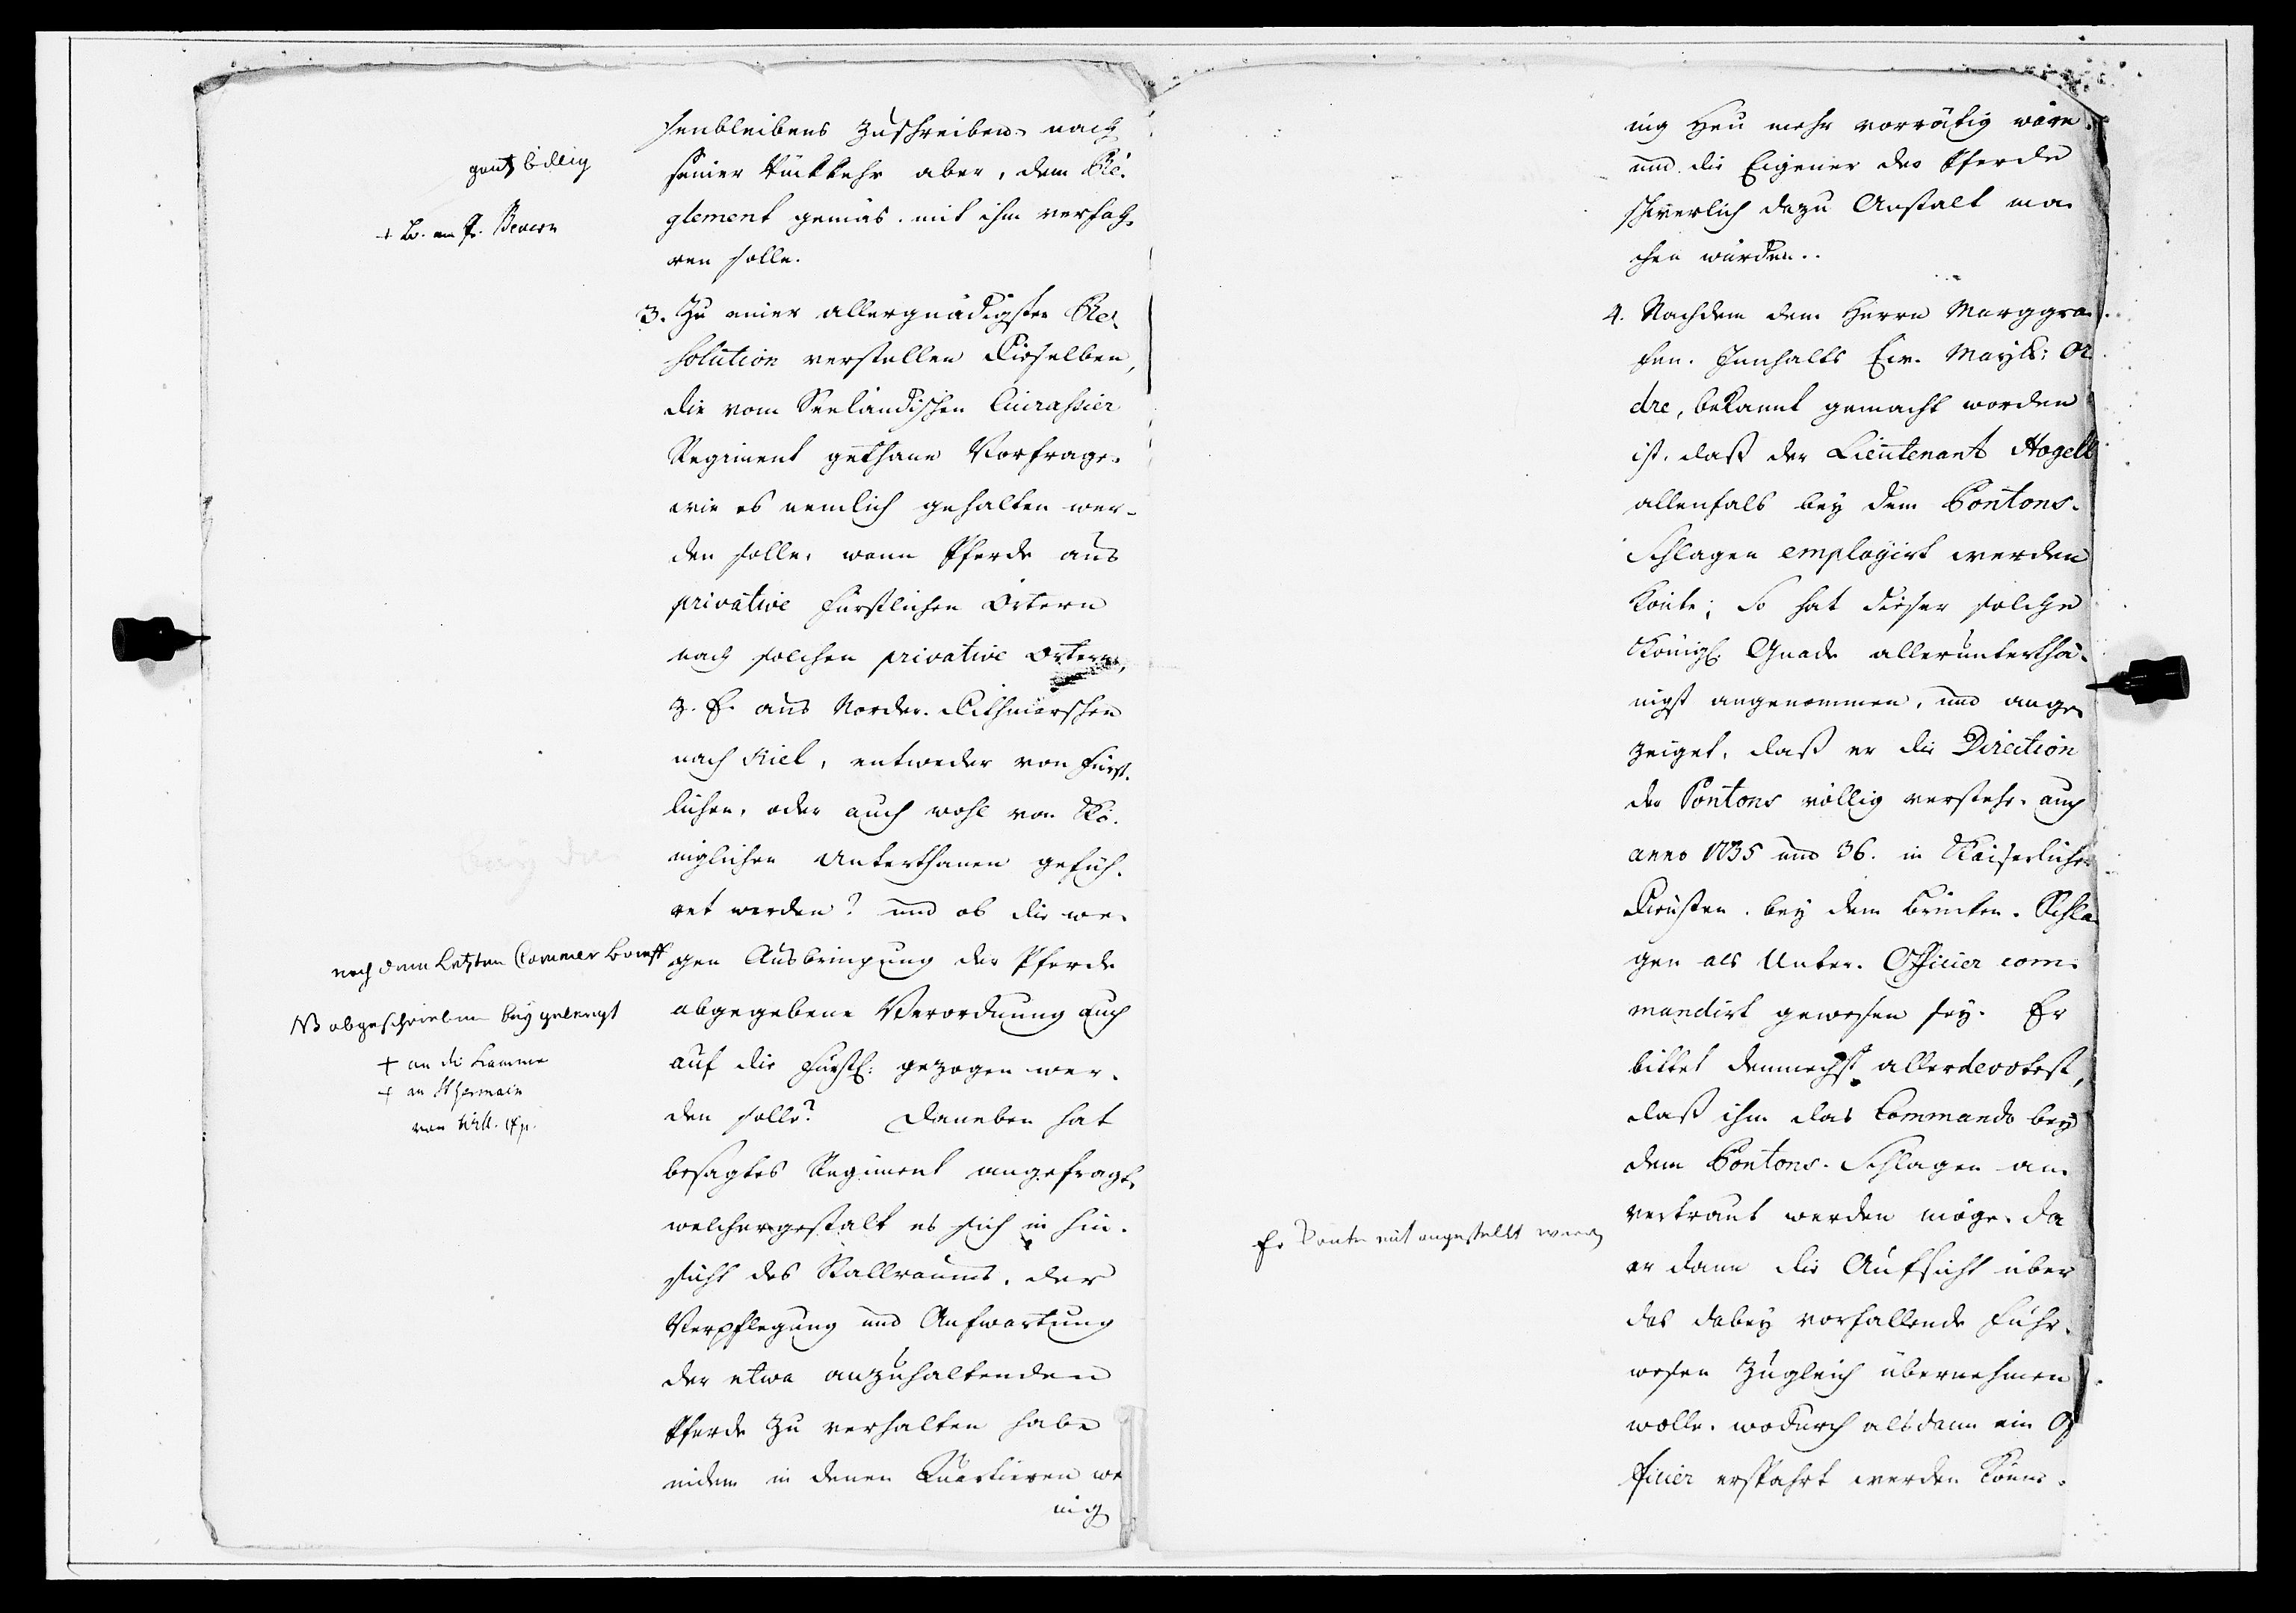 senbleibens zuschreiben, nach
seiner Rückkehr aber, dem Re-
glement gemäs mit ihm verfah-
ren solle.
gantz billig
+ Br. an Pr. Bevern
3. Zu einer allergnädigsten Re-
solution verstellen dieselben,
die vom Seeländischen Cuirassier
Regiment gethane Vorfrage,
wie es nemlich gehalten wer-
den solle, wenn Pferde aus
privative Fürstlichen Örtern
nach solchen privative Örtern,
z. E. aus Norder-Dithmarschen
nach Kiel, entweder von Fürst-
lichen, oder auch wohl von Kö-
niglichen Unterthanen gefüh-
ret werden? und ob die we-
gen Ausbringung der Pferde
abgegebene Verordnung auch
auf die Fürstl: gezogen wer-
den solle? Daneben hat
besagtes Regiment angefragt,
welchergestalt es sich in Hin-
sicht des Stallraums, der
Verpflegung und Aufwartung
der etwa anzuhaltenden
Pferde zu verhalten habe
indem in denen Quartieren we
nig
nach dem letzten Cammer Brieff
NB abgeschrieben beygelegt
+ an die Kammer
+ an St Germain
von
nig Heu mehr vorrätig wäre
und die Eigener der Pferde
schwerlich dazu Anstalt ma-
chen würden.
4. Nachdem dem Herrn Marggra-
fen, Innhalts Ew. Mayts: Or
dre, bekannt gemacht worden
ist, daß der Lieutenant Hogell
allenfals bey dem Pontons-
Schlagen employirt werden
könte; So hat dieser solche
Königl. Gnade allerunterthä-
nigst angenommen, und ange-
zeiget, daß er die Direction
der Pontons völlig verstehe, auch
anno 1735 und 36. in Kaiserlichen
Diensten, bey dem Brücken-Schla-
gen als Unter-Officier com-
mandirt gewesen sey. Er
bittet demnechst allerdevotest,
daß ihm das Commando bey
dem Pontons-Schlagen an-
vertraut werden möge, da
er dann die Aufsicht über
das dabey vorfallende Fuhr-
wesen zugleich übernehmen
wolle, wodurch alsdann ein Of
ficier erspahrt werden könne.
Er konte mit angestellt werden